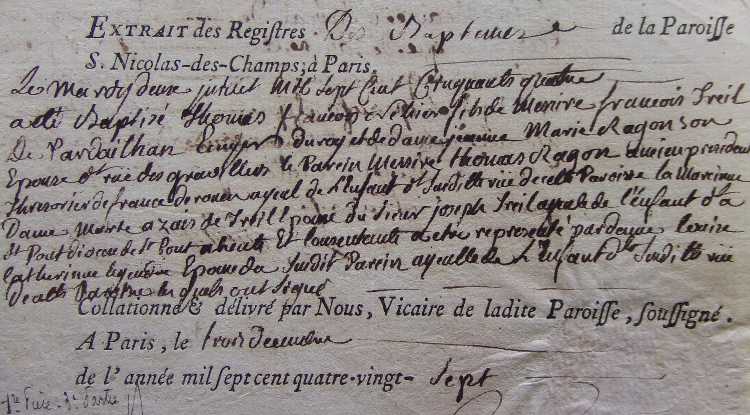 EXTRAIT des Regiſtres Des Baptemes de la Paroiſſe
S. Nicolas-des-Champs, à Paris.
Le Mardy deux juillet Mil Sept Cent Cinquante quatre
a eté Baptisé Thomas françois fils de Messire françois Treil
De Pardailhan Ecuyer du roy et de dame jeanne Marie Ragon son
Epouse rue des gravilliers le Parein Messire thomas Ragon ancien president
thresorier de france de rouen ayeul de l'Enfant susditte rue de cette Paroisse la Mareinne
Dame Marte azais de Treil du Sieur joseph Treil ayeule de l'enfant
St Pont dioceze de St Pont absente Et Consentante a eté representé par dame
Catherinne Epouse du Susdit Parein ayeulle de l'Enfant Susditte rue
de cette Paroisse lesquels ont Signé
Collationné & délivré par Nous, Vicaire de ladite Paroiſſe, ſouſſigné.
A Paris, le trois decembre
de l'année mil ſept cent quatre-vingt- Sept
1re Piece